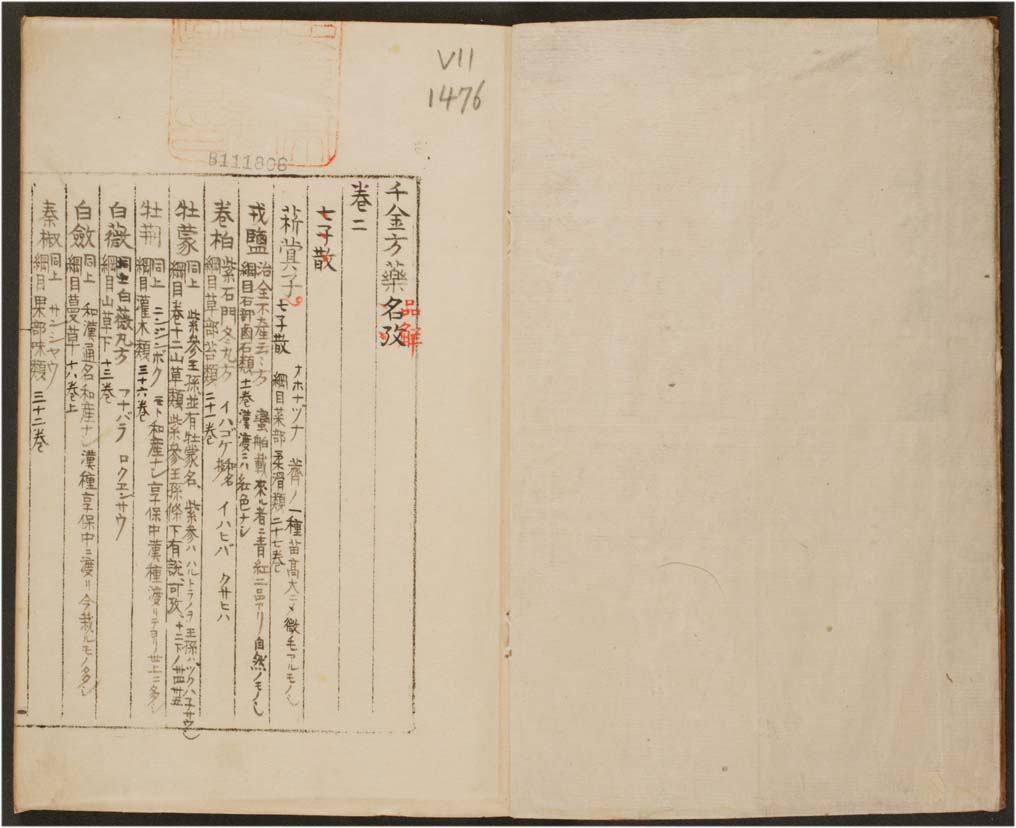 VII
1476
B111806
千金方藥名攷
品解
巻二
七子散
菥蓂子 七子散 ナホナヅナ 薺ノ一種苗高大ニメ微毛アルモノ
綱目菜部柔滑類二十七巻
戎鹽 治全不產云〻方 蠻舶載來ル者ニ青紅二品アリ自然ノモノ
綱目石部鹵石類十一巻 漢渡ニハ紅色ナシ
巻柏 紫石門冬丸方 イハゴケ和名 イハヒバ クサヒハ
綱目草部苔類二十一巻
牡蒙 同上 紫參王孫並有牡蒙名、紫參ハハルトラノヲ王孫ハツクハ子サウ
綱目巻十二山草類紫參王孫條下有説、可攷、
牡荊 同上 ニンジンボク 和産ナシ享保中漢種渡リテヨリ世上ニ多シ
綱目灌木類三十六巻
白薇 同上白薇丸方 フナバラ ロクヱンサウ
綱目山草下十三巻
白斂 同上 和漢通名和産ナシ 漢種享保中ニ渡リ今栽ルモノ多シ
綱目蔓草十八巻上
秦椒 同上 サンシヤウ
綱目果部味類三十二巻